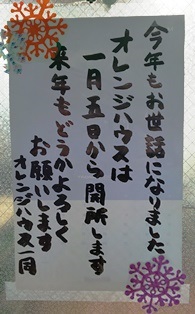 今年もお世話になりました
オレンジハウスは
一月五日から開所します
来年もどうかよろしく
お願いします
オレンジハウス一同